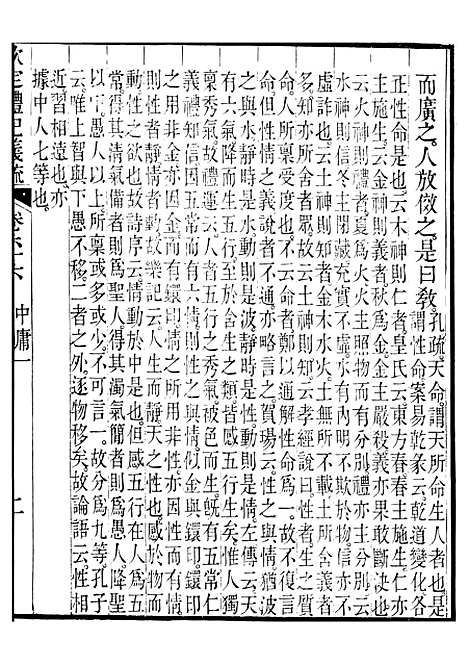 而廣之。人放傚之。是曰敎。
孔疏。天命。謂天所命生人者也。是
謂性命。案易乾彖云。乾道變化。各
正性命是也。云木神則仁者。皇氏云。東方春。春主施生。仁亦
主施生。云金神則義者。秋爲金。金主嚴殺。義亦果敢斷決也。
云火神則禮者。夏爲火。火主照物而有分別。禮亦主分別。云
水神則信。冬主閉藏。充實不虛。水有內明。不欺於物。信亦不
虛詐也。云土神則知者。金木水火。土無所不載。土所含義者
多。知亦所含者眾。故云土神則知。云孝經說曰。性者生之質
命。人所稟受度也。不云命者。鄭以性命爲一。故不復言
命。但性情之義。說者不通。亦略言之。賀瑒云。性之與情。猶波
之與水。靜時是水。動則是波。靜時是性。動則是情。左傳云。天
有六氣。降而生五行。至於含生之類。皆感五行生矣。惟人獨
稟秀氣。故禮運云。人者五行之秀氣。被色而生。旣有五常仁
義禮知信。因五常而有六情。則性之與情。似金與鐶印。鐶印
之用非金。亦因金而有鐶印。情之所用非性。亦因性而有情
則性者靜。情者動。故樂記云。人生而靜。天之性也。感於物而
動。性之欲也。故詩序云。情動於中是也。但感五行。在人爲五
常。得其淸氣備者則爲聖人。得其濁氣簡者則爲愚人。降聖
以下。愚人以上。所稟或多或少。不可言一。故分爲九等。孔子
云。唯上智與下愚不移。二者之外。逐物移矣。故論語云。性相
近。習相遠也。亦
據中人七等也。
欽定禮記義疏 卷六十六 中庸一 二